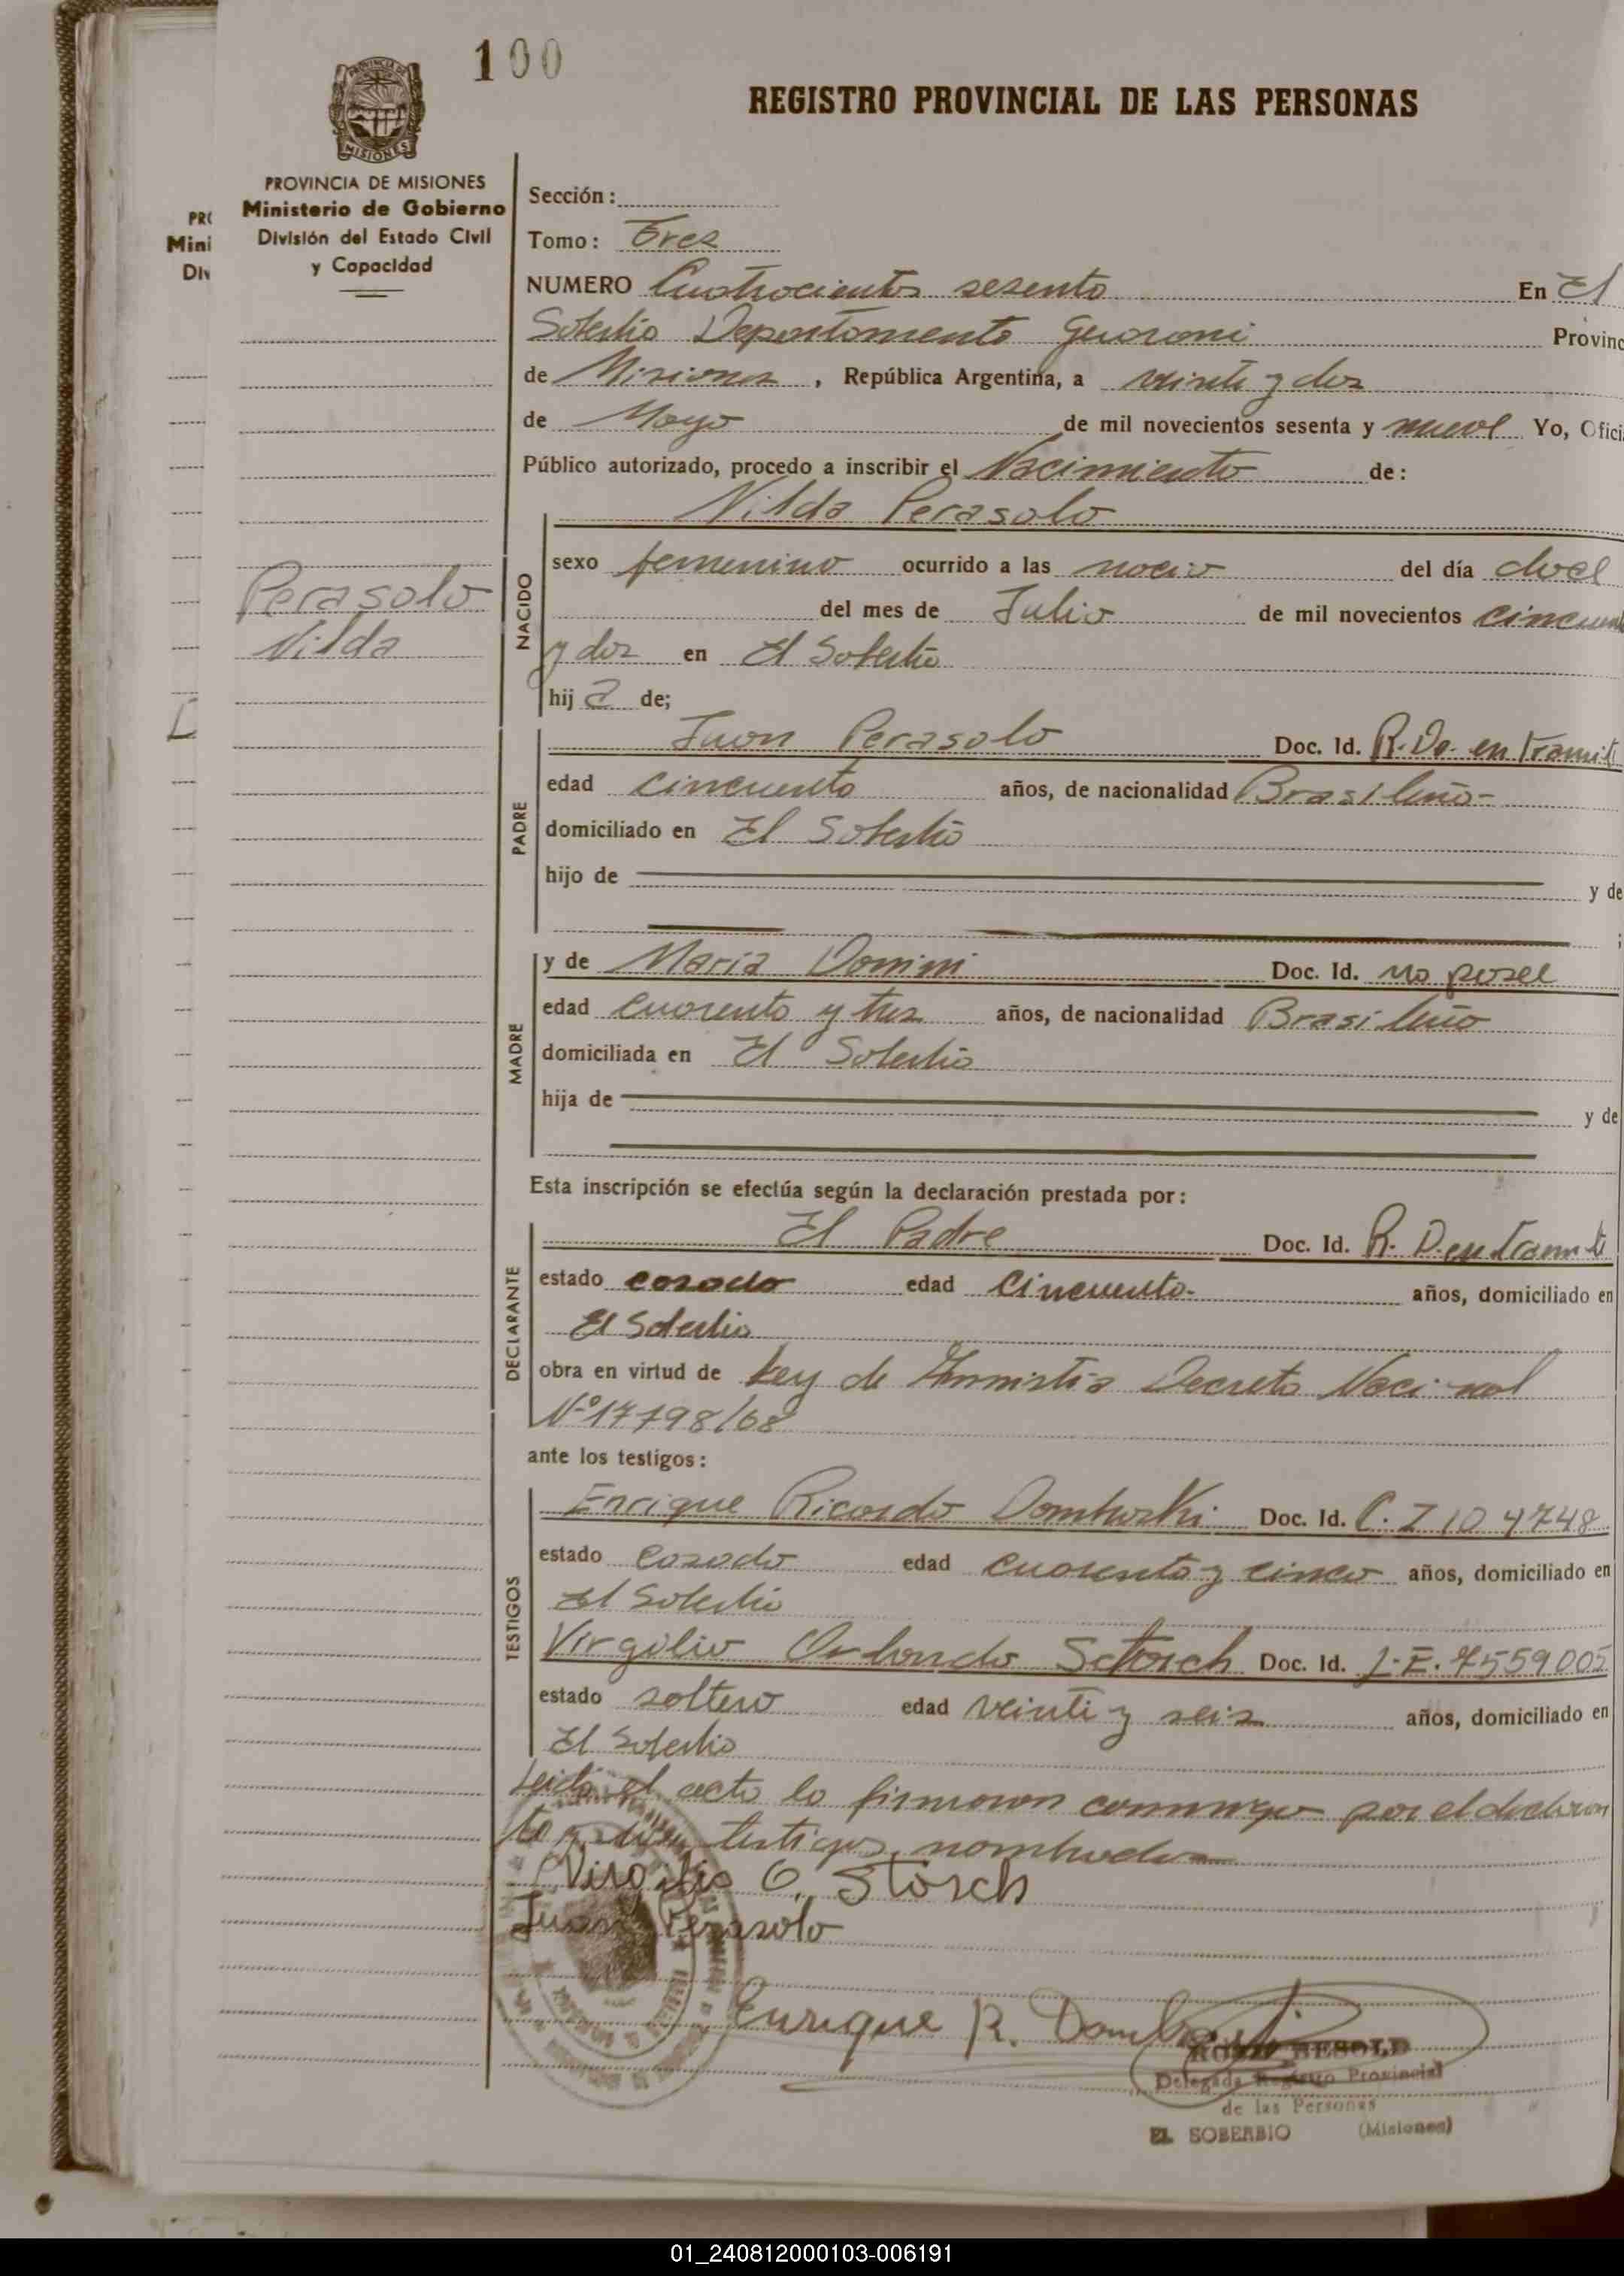 100
REGISTRO PROVINCIAL DE LAS PERSONAS
MISIONES
PROVINCIA DE MISIONES
Ministerio de Gobierno
División del Estado Civil
y Capacidad
Sección:
Tomo: Tres
NUMERO Cuatrocientos sesenta En El
Soberbio Departamento Guarani Provinc
de Misiones , República Argentina, a veinte y dos
de Mayo de mil novecientos sesenta y nueve Yo, Ofici
Público autorizado, procedo a inscribir el Nacimiento de:
Nilda Perasolo
NACIDO
sexo femenino ocurrido a las del día doce
del mes de Julio de mil novecientos cincuen
y dos en El Soberbio
hij a de;
Perasolo
Nilda
PADRE
Juan Perasolo Doc. Id. R. De. en tramit
edad cincuenta años, de nacionalidad Brasileño-
domiciliado en El Soberbio
hijo de y de
MADRE
y de Maria Domini Doc. Id. no posee
edad cuarenta y tres años, de nacionalidad Brasileño
domiciliada en El Soberbio
hija de y de
Esta inscripción se efectúa según la declaración prestada por:
DECLARANTE
El Padre Doc. Id. R. D. en tramit
estado casado edad cincuenta- años, domiciliado en
El Soberbio
obra en virtud de Ley de Amnistia Decreto Nacional
Nº 17798/68
ante los testigos:
TESTIGOS
Enrique Ricardo Domburski Doc. Id. C. I 104748
estado casado edad cuarenta y cinco años, domiciliado en
El Soberbio
Virgilio Orlando Storch Doc. Id. L.E. 7559005
estado soltero edad veinti y seis años, domiciliado en
El Soberbio
Leida el acta la firmaron conmigo por el declaran
te y testigos nombrados
Virgilio O. Storch
Juan Perasolo
Enrique R.
BESOLD
Delegada Registro Provincial
de las Personas
EL SOBERBIO (Misiones)
01_240812000103-006191